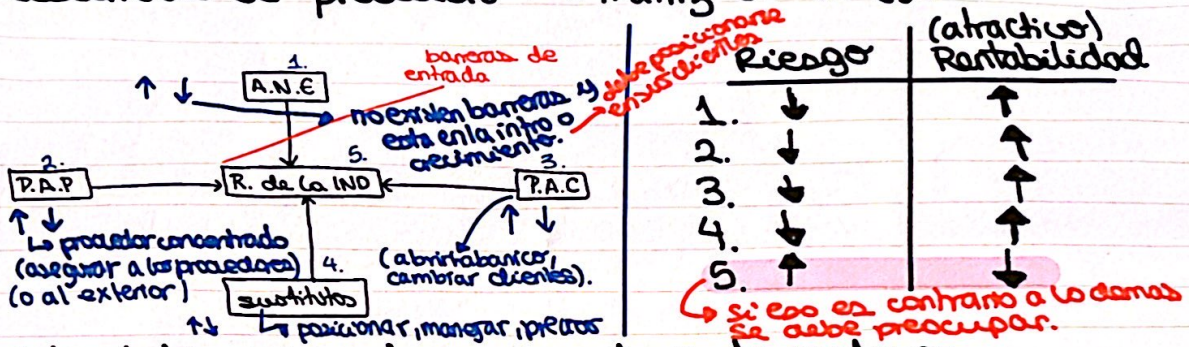 1.
A.N.E
↑ ↓
barreras de
entrada
no existen barreras y
esta en la intro o
crecimiento.
debe posicionarse
en sus clientes
2.
P.A.P
5.
R. de la IND
3.
P.A.C
↑ ↓
↳ proveedor concentrado
(asegurar a los proveedores)
(o al exterior)
↑ ↓
(abrir abanico,
cambiar clientes).
4.
sustitutos
↑↓
↳ posicionar, manejar, precios
Riesgo
(atractivo)
Rentabilidad
1. ↓ ↑
2. ↓ ↑
3. ↓ ↑
4. ↓ ↑
5. ↑ ↓
↳ si eso es contrario a lo demas
se debe preocupar.